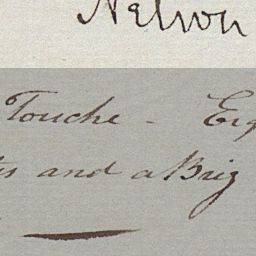 Nelson
Touche - Eig
and a Brig